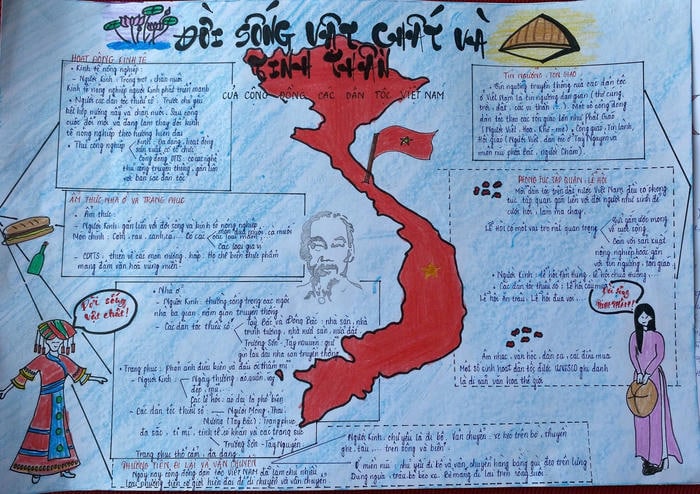 ĐỜI SỐNG VẬT CHẤT VÀ
TINH THẦN
CỦA CỘNG ĐỒNG CÁC DÂN TỘC VIỆT NAM
HOẠT ĐỘNG KINH TẾ
• Kinh tế nông nghiệp
- Người Kinh: Trồng trọt, chăn nuôi
Kinh tế nông nghiệp người Kinh phát triển mạnh
• Người các dân tộc thiểu số: Trước chủ yếu
kết hợp nương rẫy và chăn nuôi. Sau công
cuộc đổi mới và đang làm thay đổi kinh
tế nông nghiệp theo hướng hiện đại
• Thủ công nghiệp
Kinh: Đa dạng, hoạt động
sản xuất có tổ chức
Cộng đồng DTTS: có các nghề
thủ công truyền thống, gắn liền
với bản sắc dân tộc
ẨM THỰC, NHÀ Ở VÀ TRANG PHỤC
• Ẩm thực:
- Người Kinh: gắn liền với đời sống và kinh tế nông nghiệp
Món chính: Cơm, rau, canh, cá... Có các
các loại mắm
Các loại gia vị
- CĐTTS: thiên về các món nướng, hấp. Họ chế biến thực phẩm
mang đậm văn hóa vùng miền
• Nhà ở
- Người Kinh: thường sống trong các ngôi
nhà ba gian, năm gian truyền thống
- Các dân tộc thiểu số:
Tây Bắc và Đông Bắc: nhà sàn, nhà
trình tường, nhà nửa sàn nửa đất
Trường Sơn - Tây nguyên: giữ
gìn lâu dài nhà sàn truyền thống
• Trang phục: Phản ánh điều kiện và đầu óc thẩm mĩ
- Người Kinh:
Ngày thường: áo, quần, váy
dép, mũ,...
Các lễ hội: áo dài là phổ biến
- Các dân tộc thiểu số:
Người Mông, Thái,
Mường (Tây Bắc): trang phục
đa sắc, tỉ mỉ, tinh tế có khăn với các trang sức
Trường Sơn - Tây Nguyên
Trang phục thổ cẩm, đa dạng
PHƯƠNG TIỆN ĐI LẠI VÀ VẬN CHUYỂN
Ngày nay cộng đồng dân tộc VIỆT NAM đã làm chủ nhiều
loại phương tiện cơ giới hiện đại để di chuyển và vận chuyển
- Người Kinh: chủ yếu là đi bộ. Vận chuyển: xe kéo trên bộ, thuyền
ghe, tàu,... trên sông và biển
Ở miền núi: chủ yếu đi bộ và vận chuyển hàng bằng gùi đeo trên lưng
Dùng ngựa, trâu, bò kéo xe. Bè mảng đi lại trên sông suối
TÍN NGƯỠNG - TÔN GIÁO
• Tín ngưỡng truyền thống của các dân tộc
ở Việt Nam là tín ngưỡng dân gian (thờ cúng
trời, đất, vật có linh thần...). Một số cộng đồng
dân tộc theo các tôn giáo lớn như Phật Giáo
(Người Việt, Hoa, Khơ-me), Công giáo, Tin lành,
Hồi giáo (Người Việt, dân tộc ở Tây Nguyên và
miền núi phía Bắc, người Chăm).
PHONG TỤC TẬP QUÁN, LỄ HỘI
Mỗi dân tộc trên đất nước Việt Nam, đều có phong
tục tập quán gắn liền với đời người như sinh đẻ
cưới hỏi, làm ma chay.
Lễ hội có một vai trò rất quan trọng
Gửi gắm ước mong
về cuộc sống
Gắn với sản xuất
nông nghiệp hoặc gắn
với tín ngưỡng, tôn giáo
• Người Kinh: lễ hội đền Hùng, lễ hội chùa Hương...
- Các dân tộc thiểu số: Lễ hội cầu mùa
Lễ hội ăn trâu, Lễ hội đua voi...
Âm nhạc, văn học, dân ca, các điệu múa
Một số sinh hoạt dân tộc được UNESCO ghi danh
là di sản văn hóa thế giới
Đời sống
vật chất!
Đời sống
tinh thần!